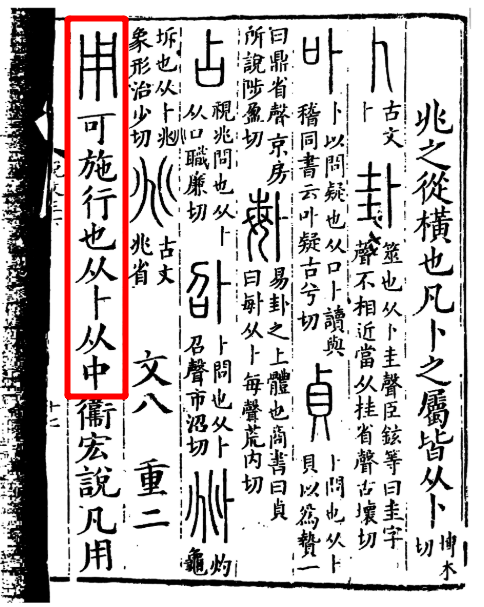 兆之從橫也凡卜之屬皆从卜博木切
卜古文卜卦筮也从卜圭聲臣鉉等曰圭字聲不相近當从挂省聲古壞切
卟卜以問疑也从口卜讀與稽同書云叶疑古兮切貞卜問也从卜貝以爲贄一
曰鼎省聲京房所說陟盈切𠧩易卦之上體也商書曰貞曰𠧩从卜每聲荒內切
占視兆問也从卜从口職廉切𠧙卜問也从卜召聲市沼切𠧞灼龜
坼也从卜兆象形治少切兆古文兆省 文八 重二
用可施行也从卜从中衞宏說凡用